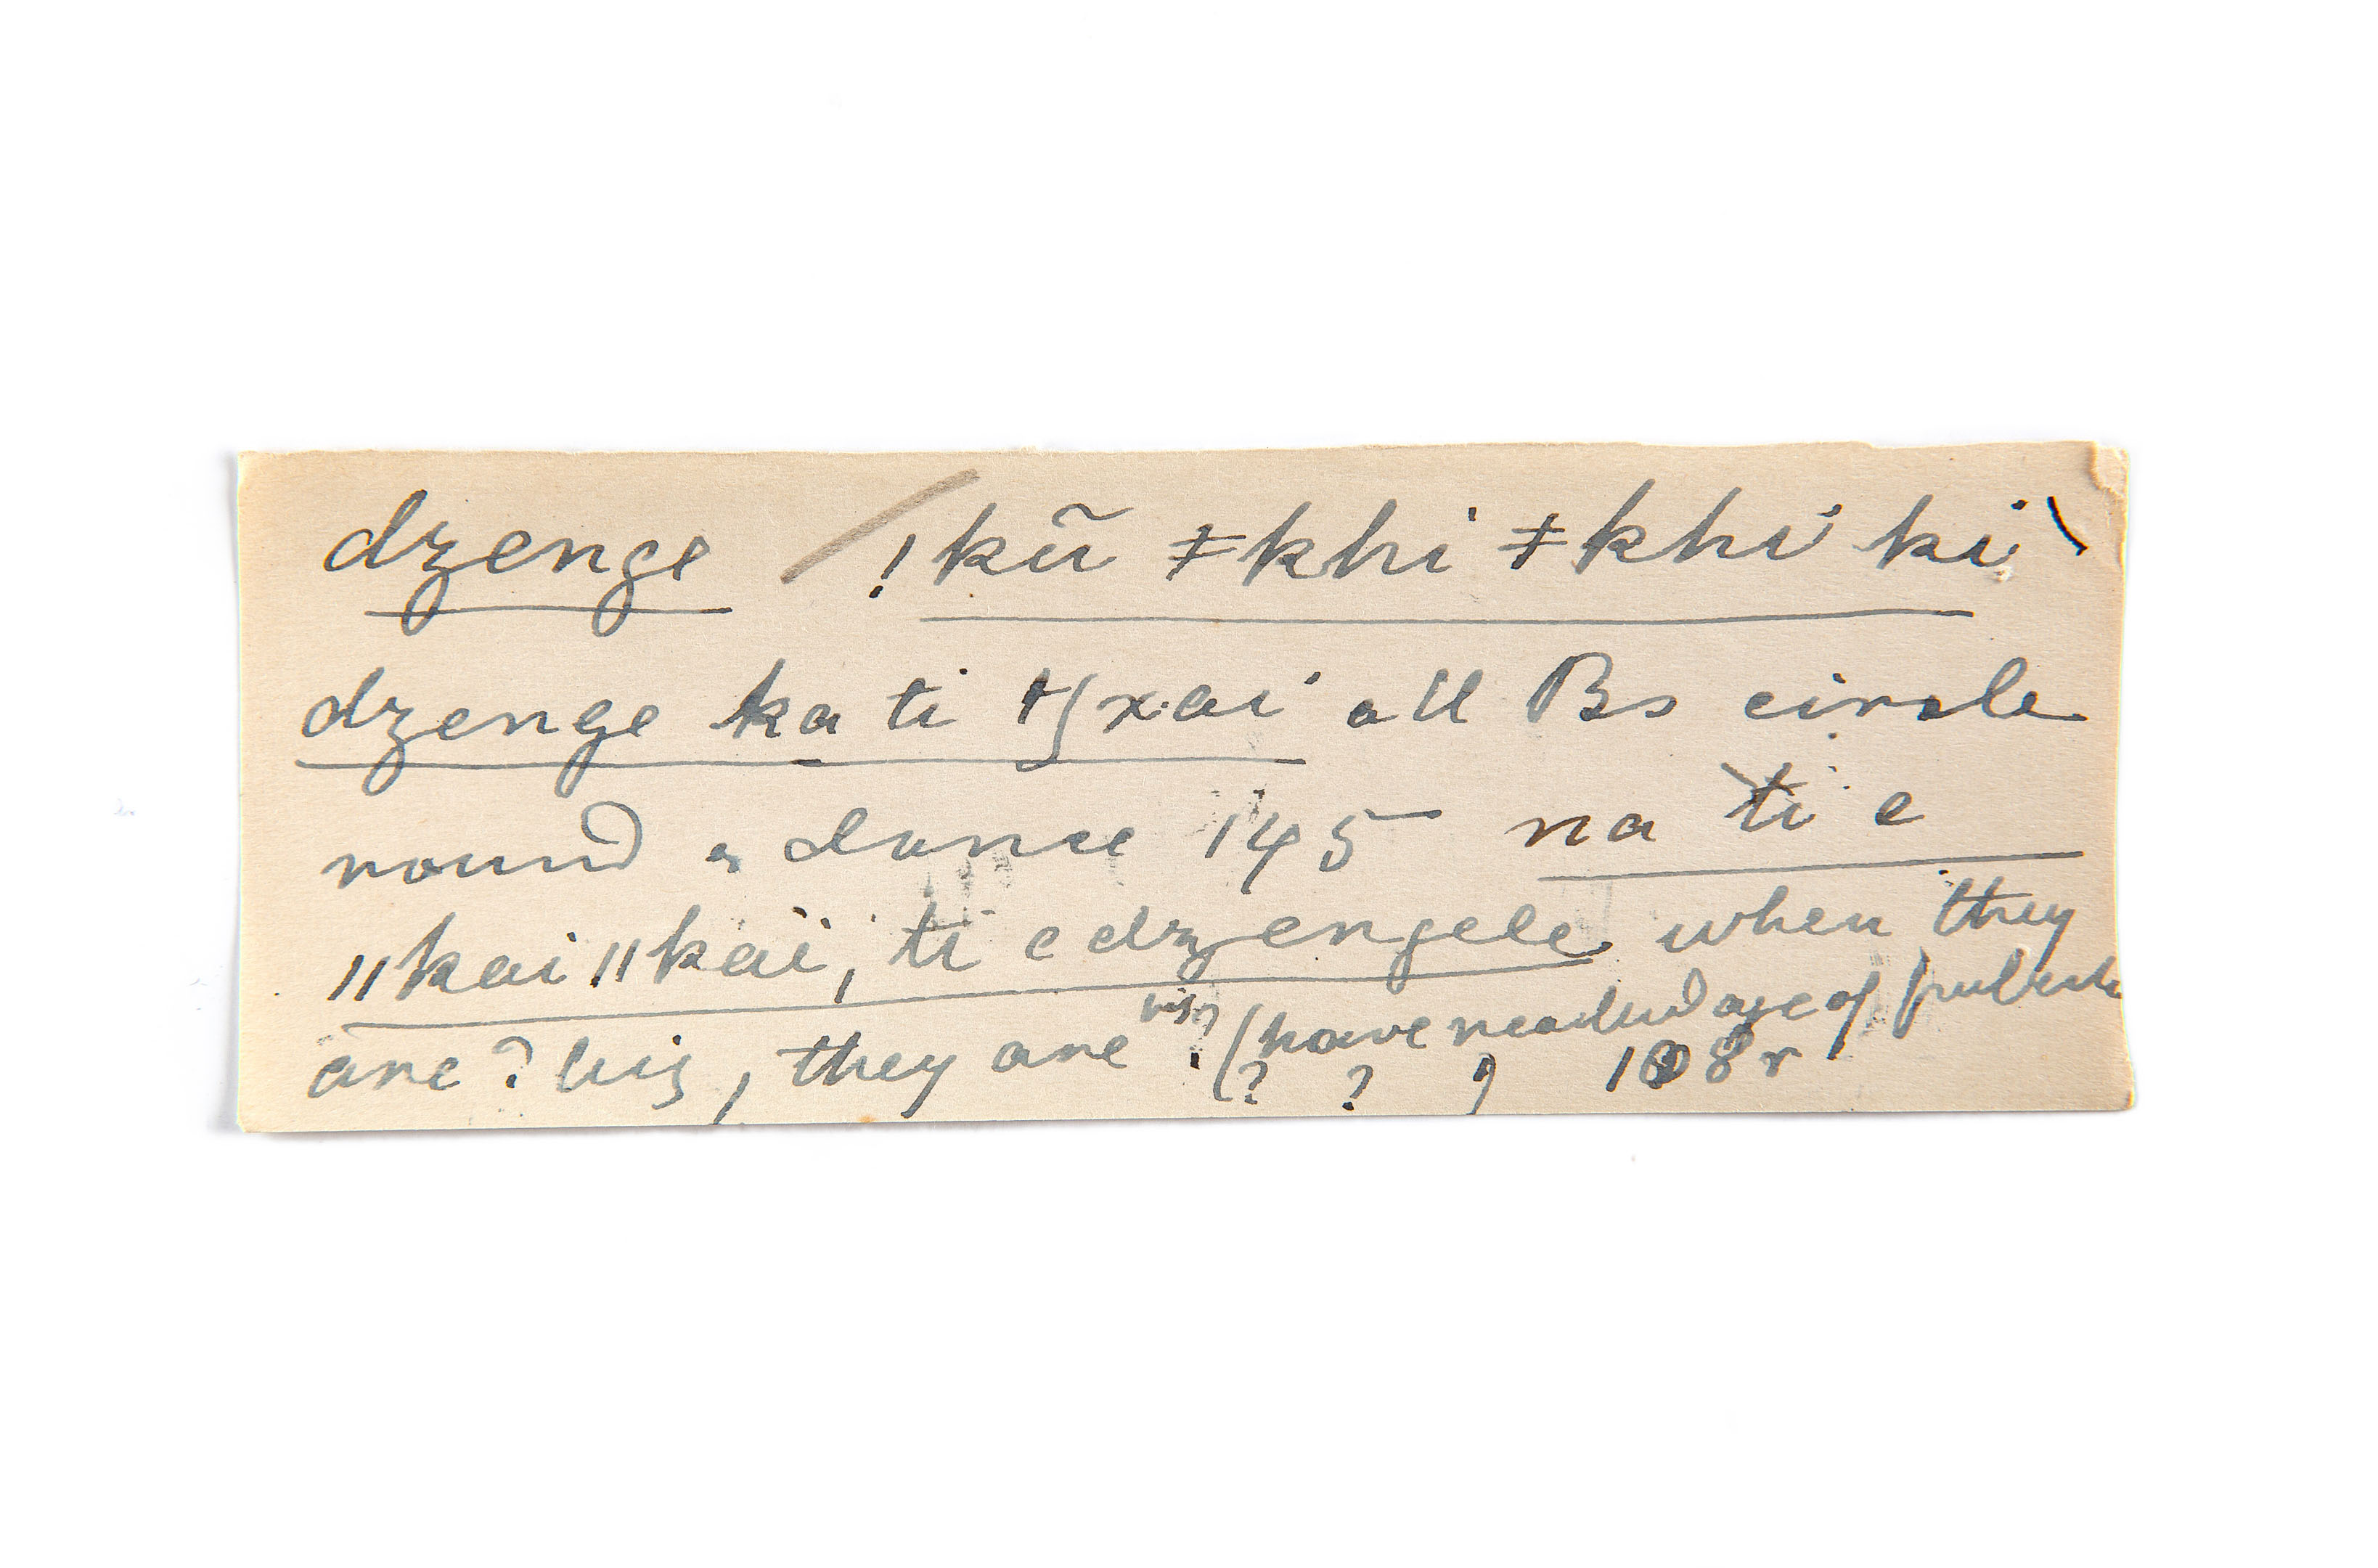 dzenge / !kũ ǂkhi ǂkhi ki
dzenge ka ti xai all Bs circle
round & dance 145 na ti e
ǁkaiǁkai, ti e dzengele when they
are ? big, they are ? (have reached age of
? ? ) 108r